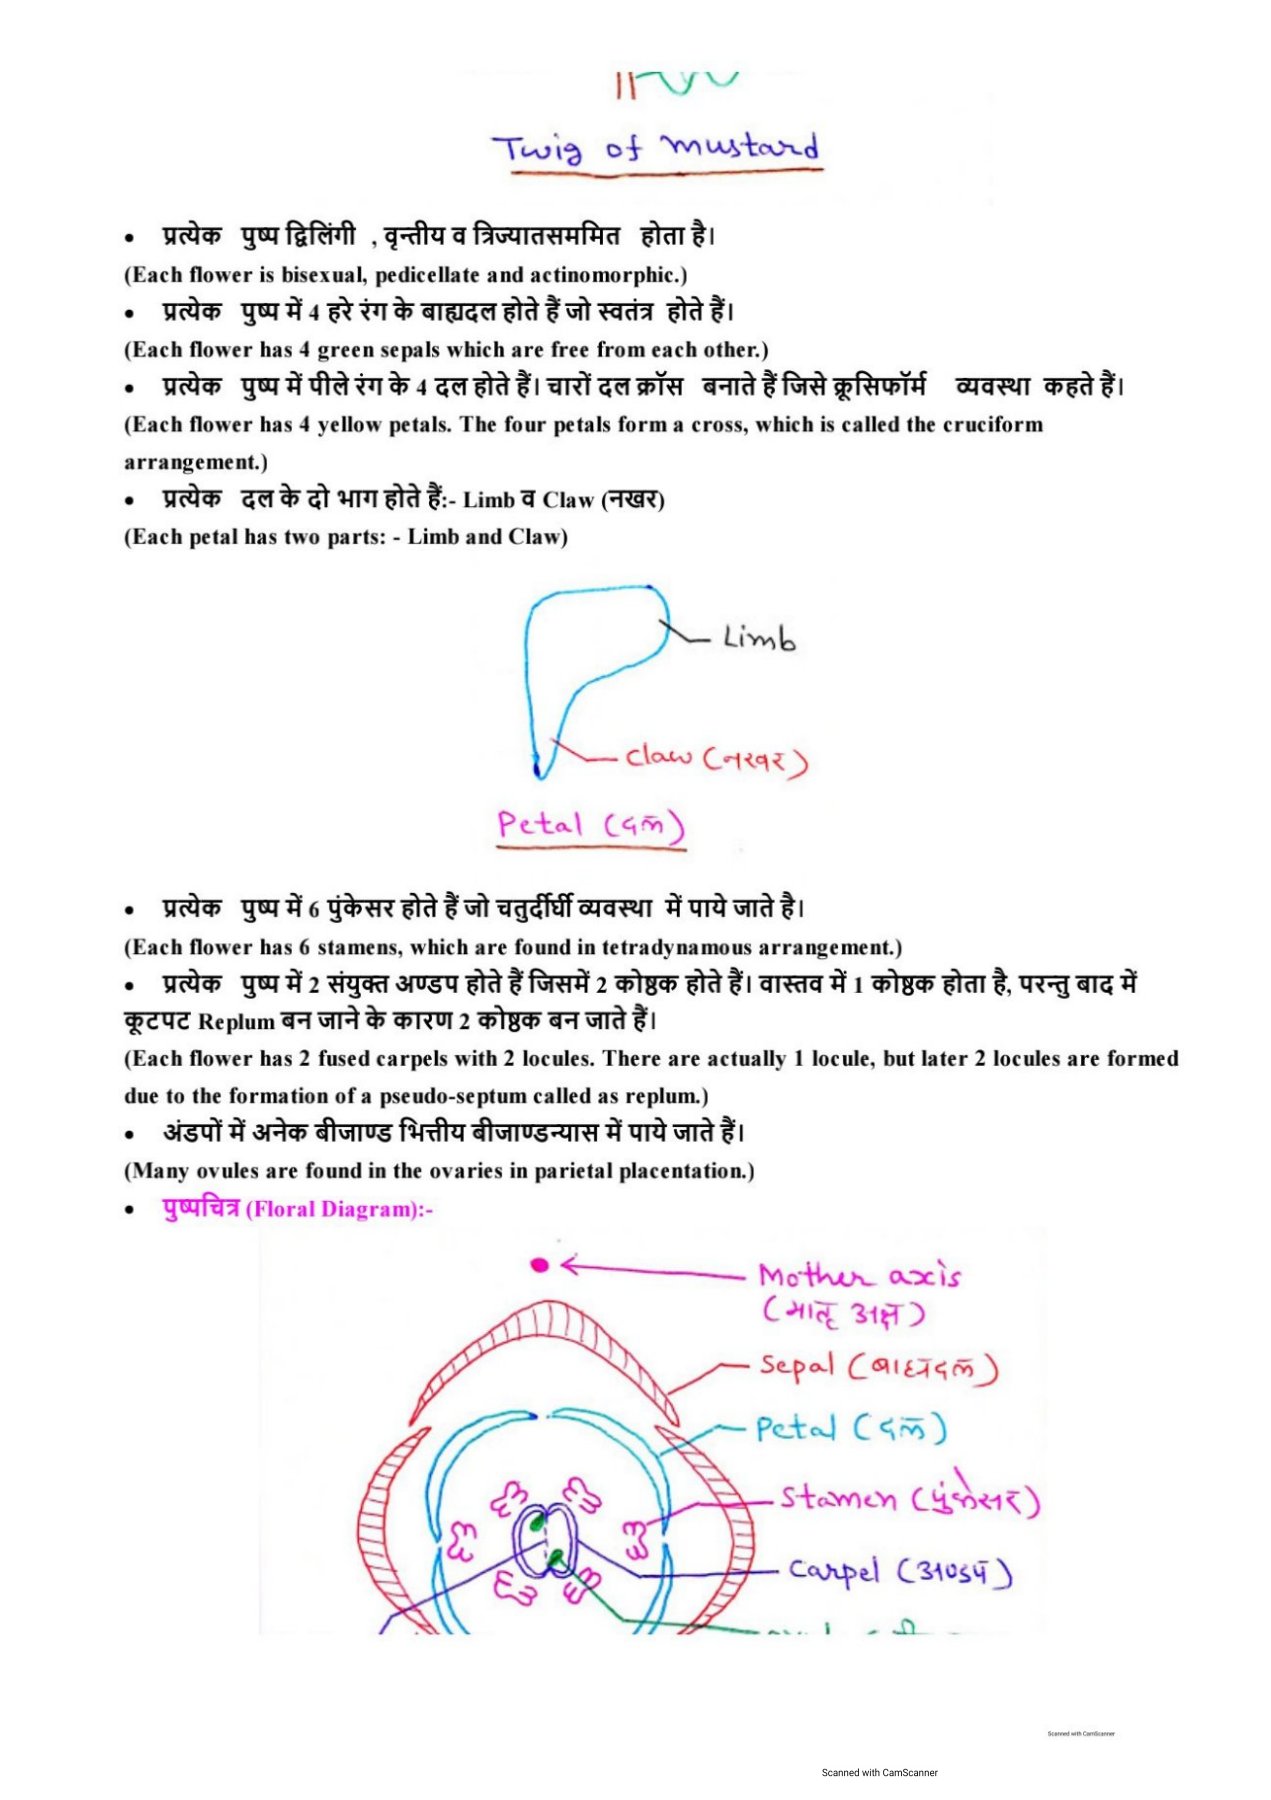 Twig of Mustard
• प्रत्येक पुष्प द्विलिंगी , वृन्तीय व त्रिज्यातसममित होता है।
(Each flower is bisexual, pedicellate and actinomorphic.)
• प्रत्येक पुष्प में 4 हरे रंग के बाह्यदल होते हैं जो स्वतंत्र होते हैं।
(Each flower has 4 green sepals which are free from each other.)
• प्रत्येक पुष्प में पीले रंग के 4 दल होते हैं। चारों दल क्रॉस बनाते हैं जिसे क्रूसिफॉर्म व्यवस्था कहते हैं।
(Each flower has 4 yellow petals. The four petals form a cross, which is called the cruciform
arrangement.)
• प्रत्येक दल के दो भाग होते हैं:- Limb व Claw (नखर)
(Each petal has two parts: - Limb and Claw)
Limb
Claw (नखर)
Petal (दल)
• प्रत्येक पुष्प में 6 पुंकेसर होते हैं जो चतुर्दीर्घी व्यवस्था में पाये जाते है।
(Each flower has 6 stamens, which are found in tetradynamous arrangement.)
• प्रत्येक पुष्प में 2 संयुक्त अण्डप होते हैं जिसमें 2 कोष्ठक होते हैं। वास्तव में 1 कोष्ठक होता है, परन्तु बाद में
कूटपट Replum बन जाने के कारण 2 कोष्ठक बन जाते हैं।
(Each flower has 2 fused carpels with 2 locules. There are actually 1 locule, but later 2 locules are formed
due to the formation of a pseudo-septum called as replum.)
• अंडपों में अनेक बीजाण्ड भित्तीय बीजाण्डन्यास में पाये जाते हैं।
(Many ovules are found in the ovaries in parietal placentation.)
• पुष्पचित्र (Floral Diagram):-
Mother axis
(मातृ अक्ष)
Sepal (बाह्यदल)
Petal (दल)
Stamen (पुंकेसर)
Carpel (अण्डप)
Scanned with CamScanner
Scanned with CamScanner